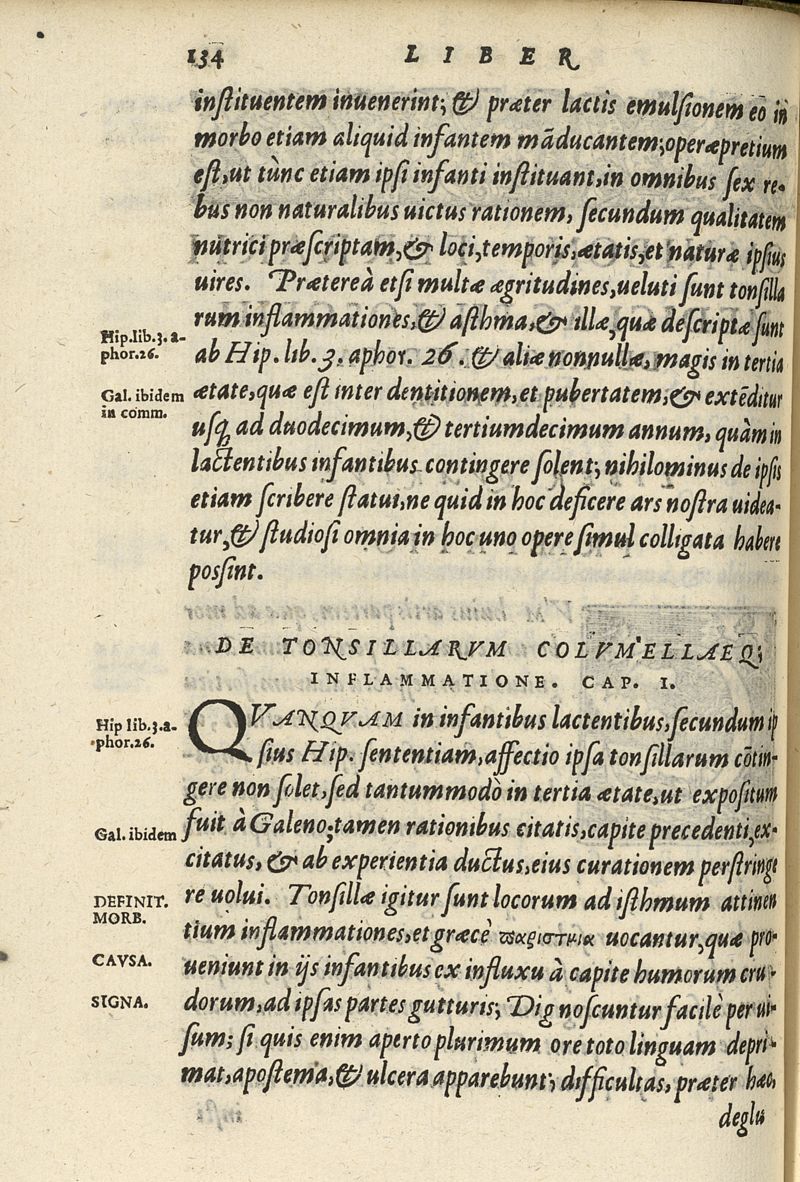 134 LIBER
instituentem inuenerint; & præter lactis emulsionem eō in
morbo etiam aliquid infantem māducantem; operæpretium
est, ut tùnc etiam ipsi infanti instituant, in omnibus sex re-
bus non naturalibus uictus rationem, secundum qualitatem
nutrici præscriptam, & loci, temporis, ætatis, et naturæ ipsius
uires. Prætereà etsi multæ ægritudines, ueluti sunt tonsilla
Hip. lib. 3. a-
phor. 26.
rum inflammationes, & asthma, & illæ, quæ descriptæ sunt
ab Hip. lib. 3. aphor. 26. & aliæ nonnullæ, magis in tertia
Gal. ibidem
in comm.
ætate, quæ est inter dentitionem, et pubertatem, & extēditur
usq́ ad duodecimum, & tertiumdecimum annum, quàm in
lactentibus infantibus contingere solent; nihilominus de ipsis
etiam scribere statui, ne quid in hoc deficere ars nostra uidea-
tur, & studiosi omnia in hoc uno opere simul colligata habere
possint.
DE TONSILLARVM COLVMELLAEQ;
INFLAMMATIONE. CAP. I.
Hip lib. 3. a-
phor. 26.
QVANQVAM in infantibus lactentibus, secundum ip
sius Hip. sententiam, affectio ipsa tonsillarum cōtin-
gere non solet, sed tantummodò in tertia ætate, ut expositum
Gal. ibidem
fuit à Galeno; tamen rationibus citatis, capite precedenti, ex-
citatus, & ab experientia ductus, eius curationem perstringe
DEFINIT.
MORB.
re uolui. Tonsillæ igitur sunt locorum ad isthmum attinen
tium inflammationes, et græcè παριστμια uocantur, quæ pro-
CAVSA.
ueniunt in ijs infantibus ex influxu à capite humorum cru-
SIGNA.
dorum, ad ipsas partes gutturis; Dignoscuntur facilè per ui-
sum; si quis enim aperto plurimum ore toto linguam depri-
mat, apostema, & ulcera apparebunt; difficultas, præter hæc,
deglu